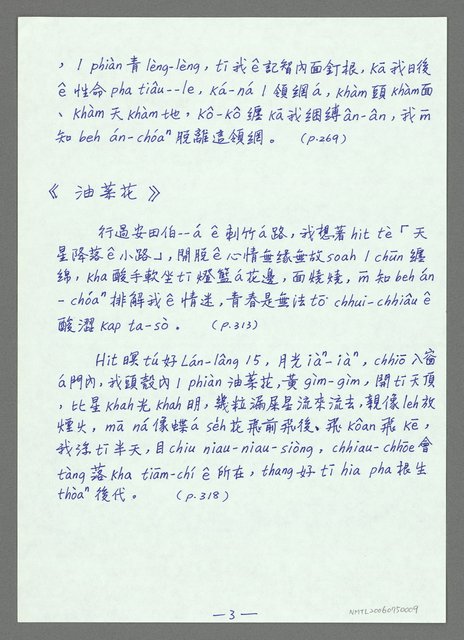 ，1 phiàn 青 lèng-lèng，tī 我 ê 記智內面釘根，kā 我日後
ê 性命 pha tiâu--le，ká-ná 1 領網 á，khàm 頭 khàm 面
、khàm 天 khàm 地，kô-kô 纏 kā 我綑縛 ân-ân，我 m̄
知 beh án-chóaⁿ 脫離這領網。 (p.269)
《 油菜花 》
行過安田伯--á ê 刺竹 á 路，我想著 hit tè「天
星降落 ê 小路」，開脫 ê 心情無緣無故 soah 1 chūn 纏
綿，kha 酸手軟坐 tī 燈籃 á 花邊，面燒燒，m̄ 知 beh án
-chóaⁿ 排解我 ê 情迷，青春是無法 tō͘ chhui-chhiâu ê
酸澀 kap ta-sò。 (p.313)
Hit 暝 tú 好 Lán-lâng 15，月光 iàⁿ-iàⁿ，chhiō 入窗
á 門內，我頭殼內 1 phiàn 油菜花，黃 gìm-gìm，開 tī 天頂
，比星 khah 光 khah 明，幾粒漏屎星流來流去，親像 leh 放
煙火，mā ná 像蝶 á se̍h 花飛前飛後、飛 kôan 飛 kē，
我徛 tī 半天，目 chiu niau-niau-siòng，chhiau-chhōe 會
tàng 落 kha tiām-chí ê 所在，thang 好 tī hia pha 根生
thòaⁿ 後代。 (p.318)
— 3 —
NMTL20060950009